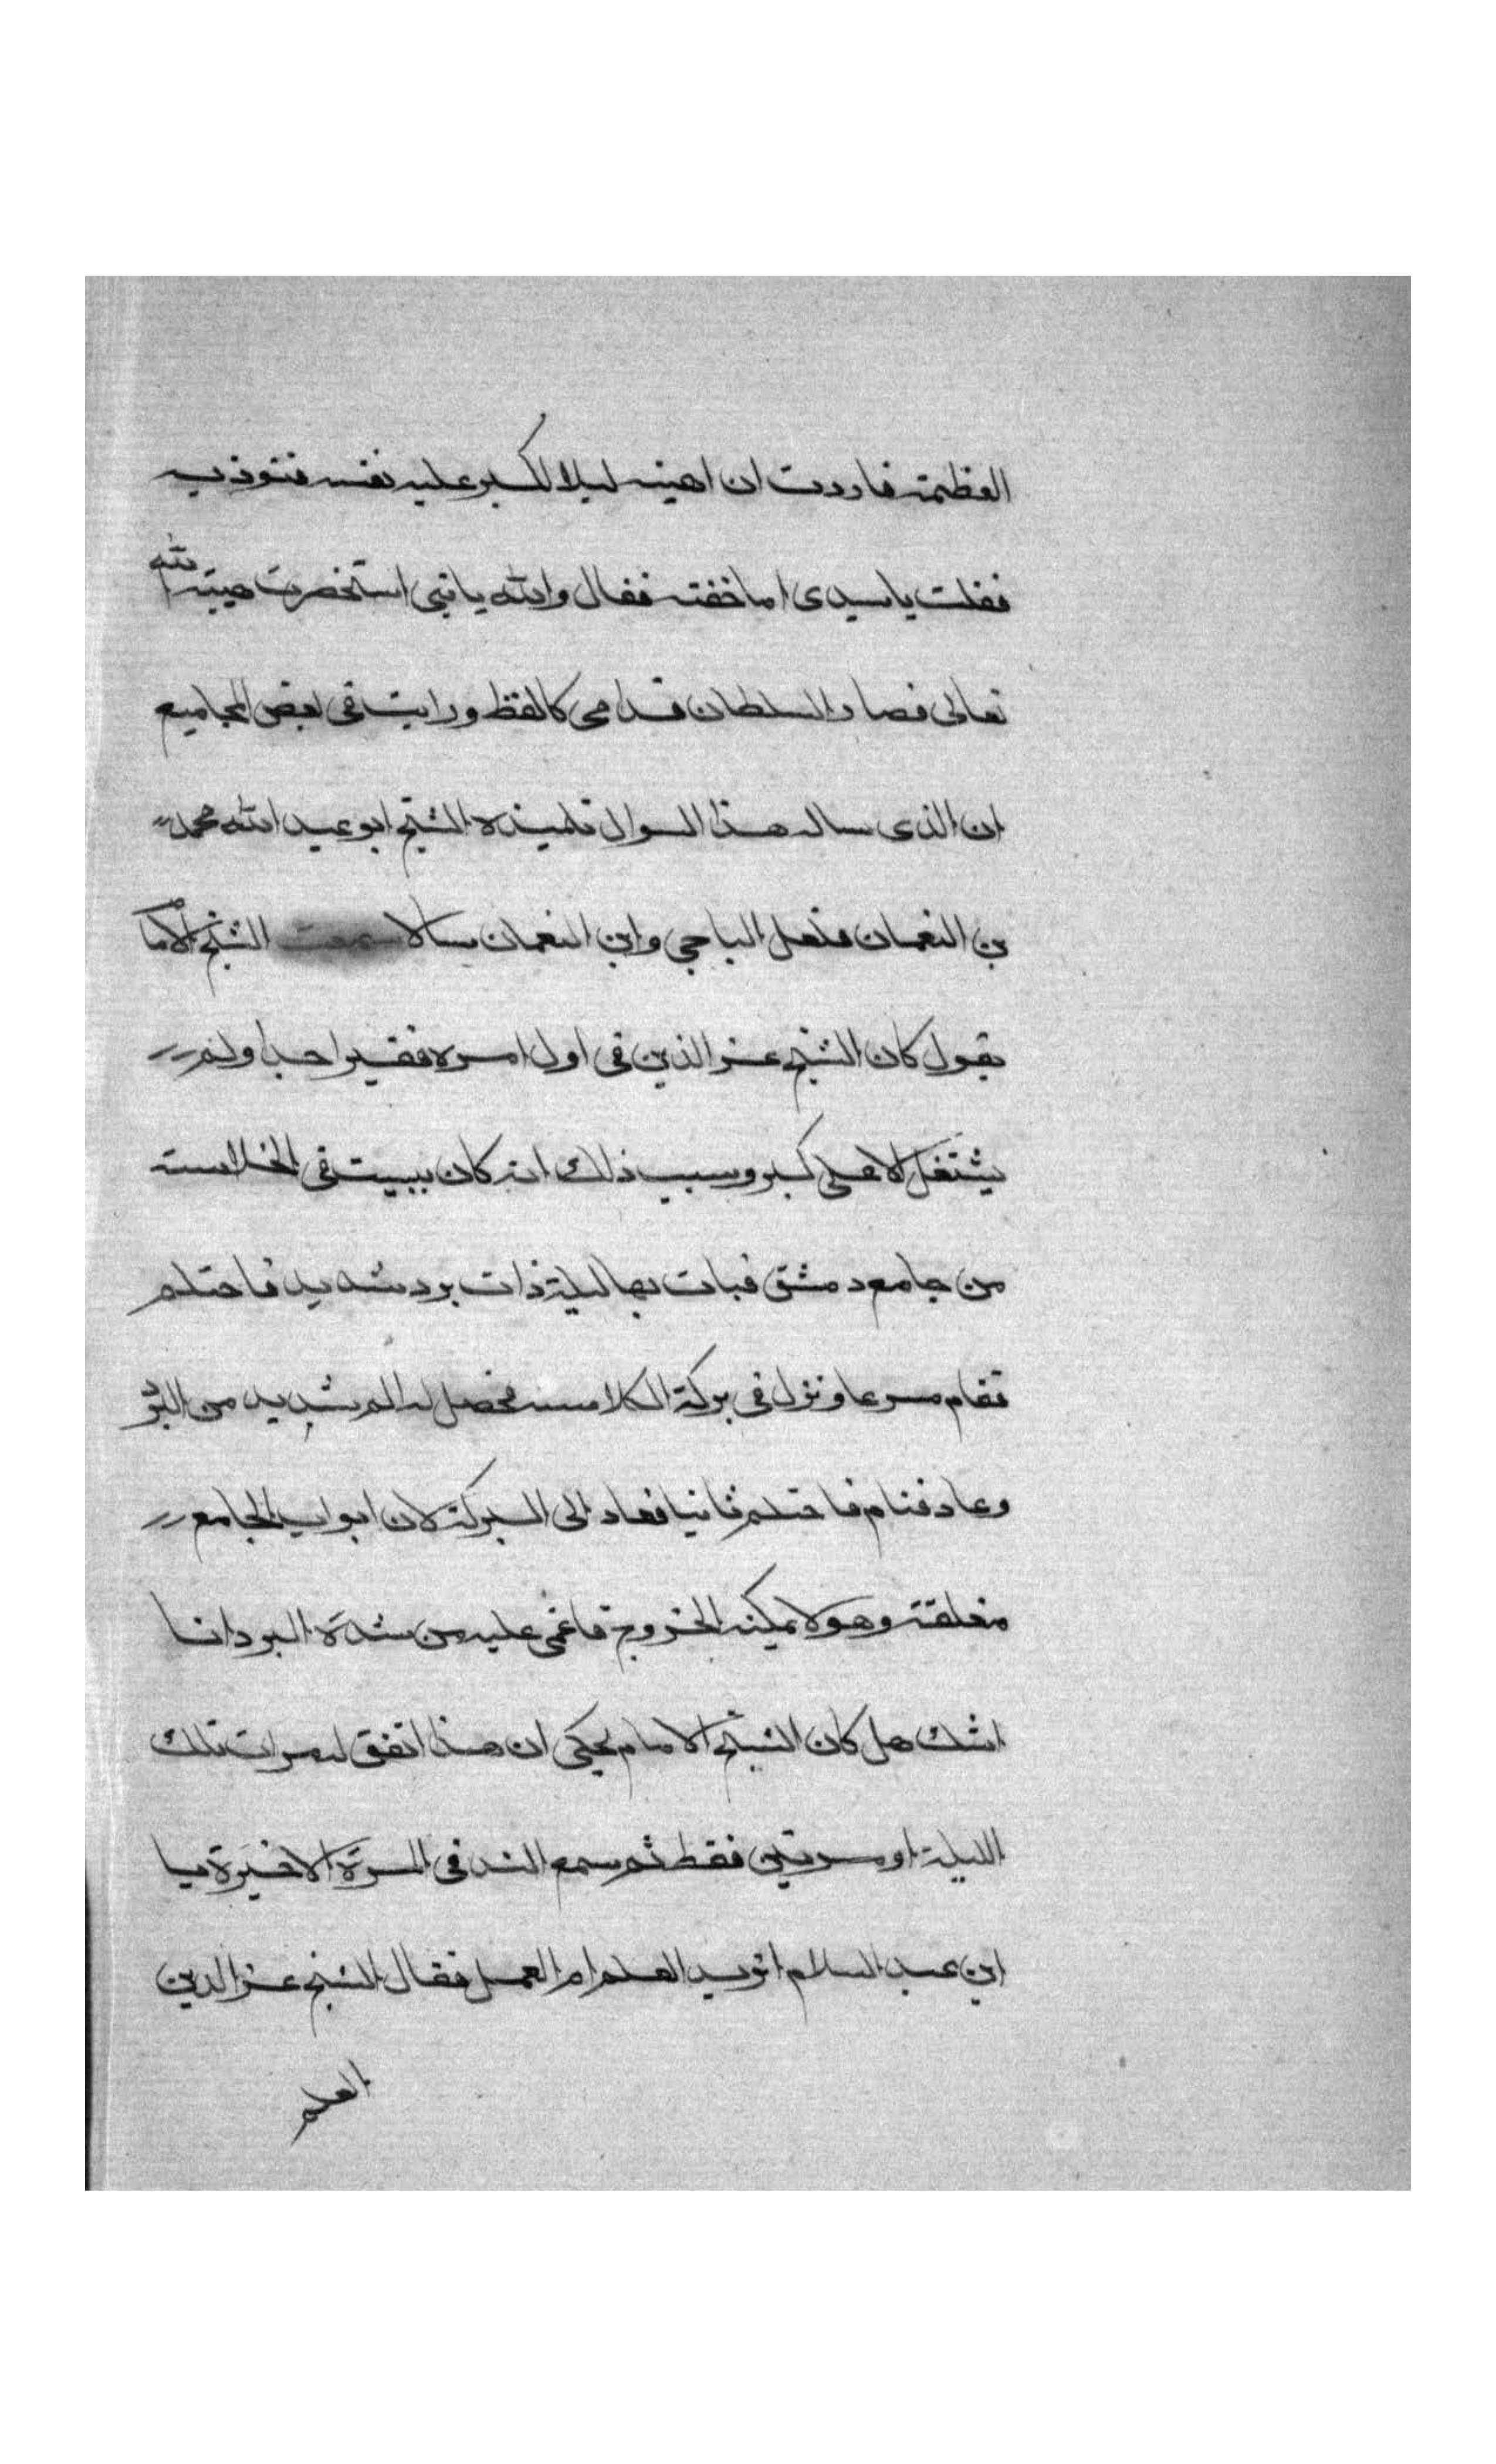 العظمة فاردت ان اهينه ليلا لكبر عليه نفسه فتوذيه
فقلت ياسيدى اما خفته فقال والله يابني استحضرت هيبة الله
تعالى فصار السلطان قدامى كالقط ورايت فى بعض المجاميع
ان الذى ساله هذا السوال تلميذه الشيخ ابو عبد الله محمد
بن النعمان فلعل الباجى وابن النعمان سالا سمعت الشيخ الاما
يقول كان الشيخ عز الدين فى اول امره فقيرا جدا ولم
يشتغل الا على كبر وسبب ذلك انه كان يبيت فى
من جامع دمشق فبات بها ليلة ذات برد شديد فاحتلم
فقام مسرعا ونزل فى بركة الكلاسة فحصل له الم شديد من البرد
وعاد فنام فاحتلم ثانيا فعاد الى البركة لان ابواب الجامع
مغلقة وهو لا يمكنه الخروج فاغمى عليه من شدة البرد انا
اشك هل كان الشيخ الامام يحكى ان هذا اتفق له مرات تلك
الليلة او مرتين فقط ثم سمع الندا فى المرة الاخيرة يا
ابن عبد السلام اتريد العلم ام العمل فقال الشيخ عز الدين
العلم